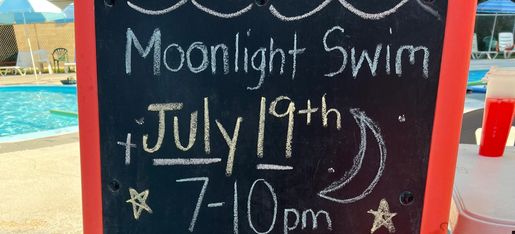 Moonlight Swim
July 19th
7-10pm